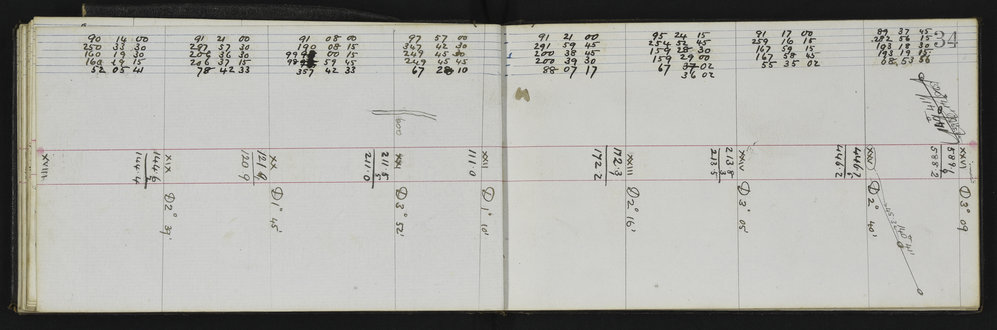 90 14 00
250 33 30
160 19 30
160 19 15
52 05 41
91 21 00
287 57 30
206 36 30
206 37 15
78 42 33
91 08 00
190 08 15
00 15
59 45
357 42 33
97 57 00
347 42 30
249 45 30
249 45 45
67 28 10
91 21 00
291 59 45
200 38 45
200 39 30
88 07 17
95 24 15
254 52 45
159 28 30
159 29 00
67 37 02
36 02
91 17 00
259 16 15
167 59 15
167 58 45
55 35 02
89 37 45
282 56 15
193 18 30
193 19 15
68 53 56
34
XVIII
XIX
144.4
2° 39'
XX
120.9
1° 45'
XXI
211.5
5
211.0
3° 52'
XXII
111.0
1° 10'
XXIII
172.2
2° 16'
XXIV
213.8
3
213.5
3° 05'
XXV
446.2
2° 40'
XXVI
588.2
3° 09